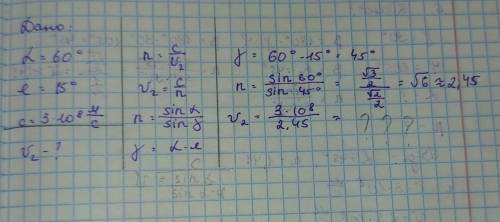 Дано:
α = 60°
e = 15°
c = 3·10⁸ м/с
v₂ - ?
n = c/v₂
v₂ = c/n
n = sin α / sin γ
γ = α - e
γ = 60° - 15° = 45°
n = sin 60° / sin 45° = (√3/2) / (√2/2) = √6 ≈ 2,45
v₂ = 3·10⁸ / 2,45 = ? ? ?